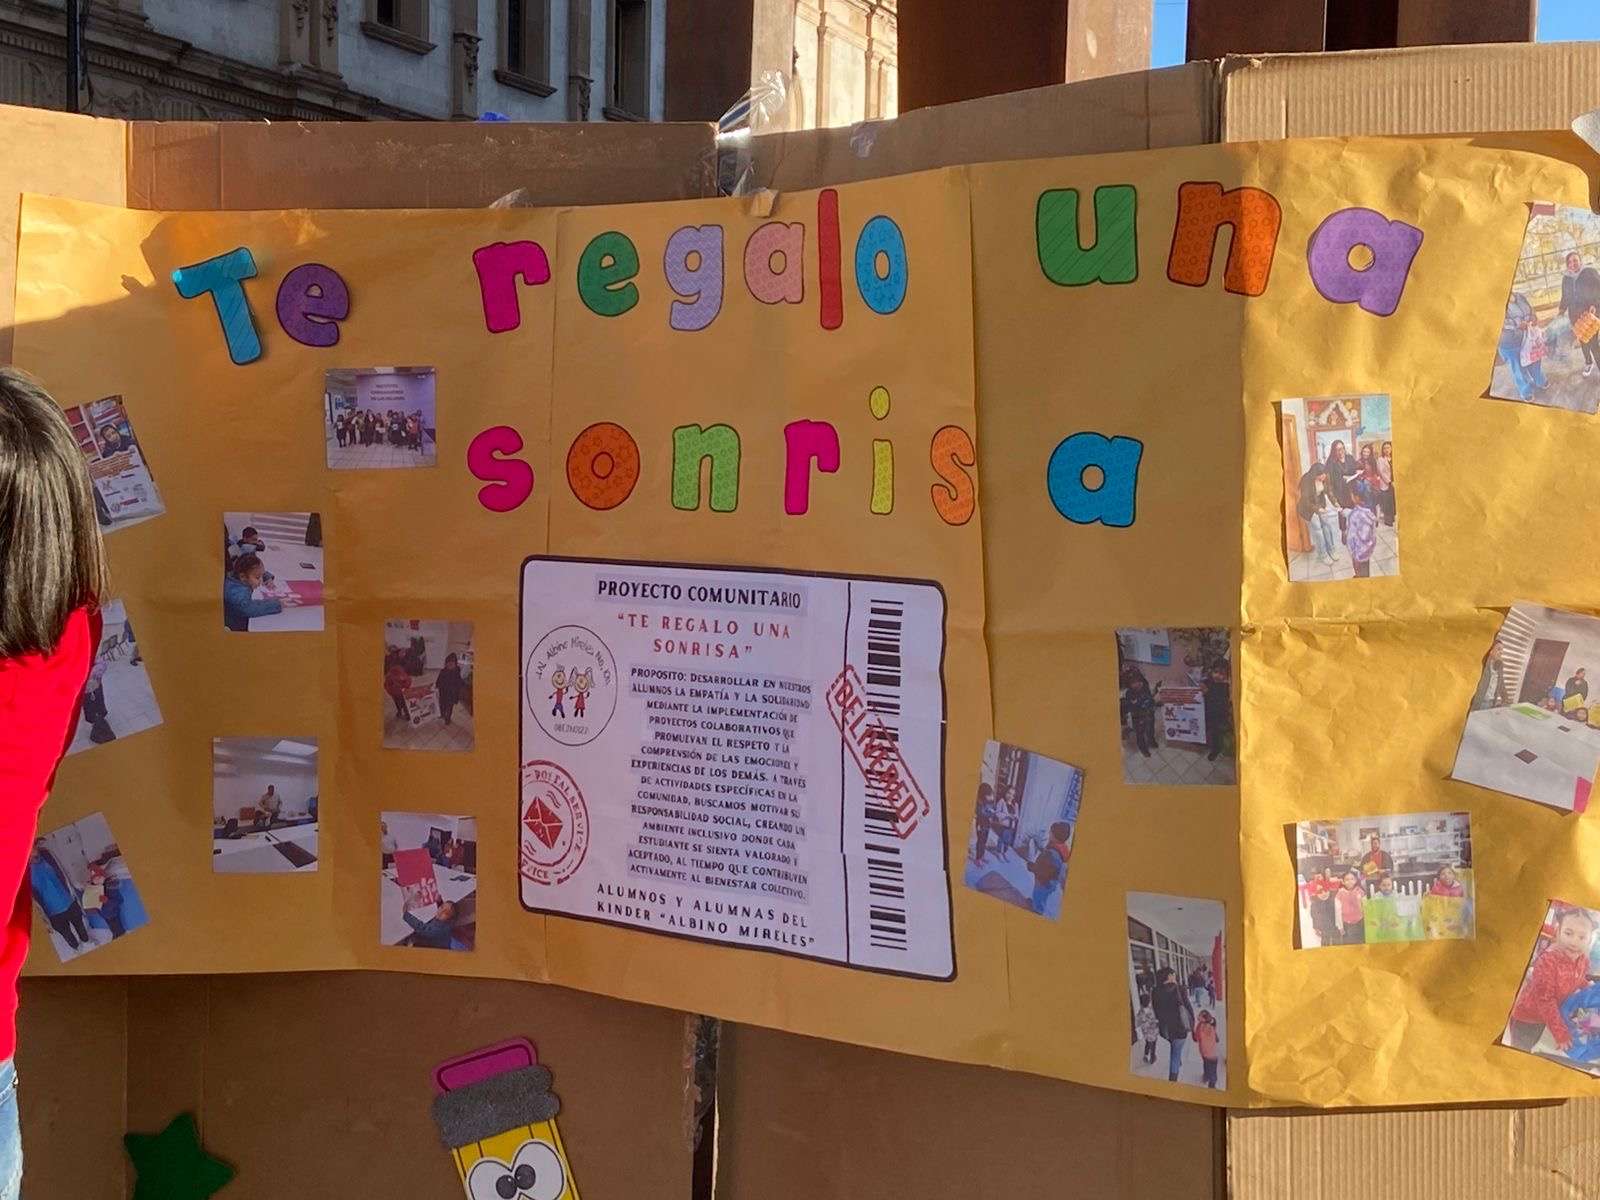 Te regalo una
sonrisa
PROYECTO COMUNITARIO
"TE REGALO UNA
SONRISA"
PROPOSITO: DESARROLLAR EN NUESTROS
ALUMNOS LA EMPATÍA Y LA SOLIDARIDAD
MEDIANTE LA IMPLEMENTACIÓN DE
PROYECTOS COLABORATIVOS QUE
PROMUEVAN EL RESPETO Y LA
COMPRENSIÓN DE LAS EMOCIONES Y
EXPERIENCIAS DE LOS DEMÁS. A TRAVÉS
DE ACTIVIDADES ESPECÍFICAS EN LA
COMUNIDAD, BUSCAMOS MOTIVAR SU
RESPONSABILIDAD SOCIAL, CREANDO UN
AMBIENTE INCLUSIVO DONDE CADA
ESTUDIANTE SE SIENTA VALORADO Y
ACEPTADO, AL TIEMPO QUE CONTRIBUYEN
ACTIVAMENTE AL BIENESTAR COLECTIVO.
ALUMNOS Y ALUMNAS DEL
KINDER "ALBINO MIRELES"
Albino Mireles
POSTAL SERVICE
OFFICE
DELIVERED